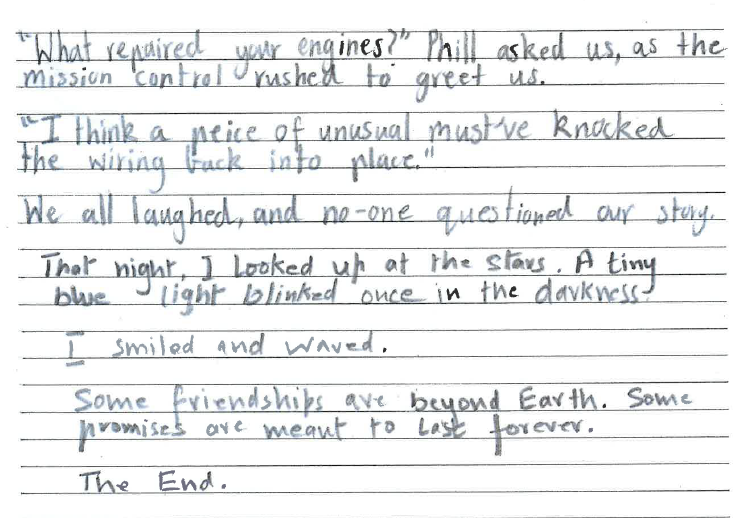 "What repaired your engines?" Phill asked us, as the
mission control rushed to greet us.
"I think a peice of unusual must've knocked
the wiring back into place."
We all laughed, and no-one questioned our story.
That night, I looked up at the stars. A tiny
blue light blinked once in the darkness.
I smiled and waved.
Some friendships are beyond Earth. Some
promises are meant to last forever.
The End.